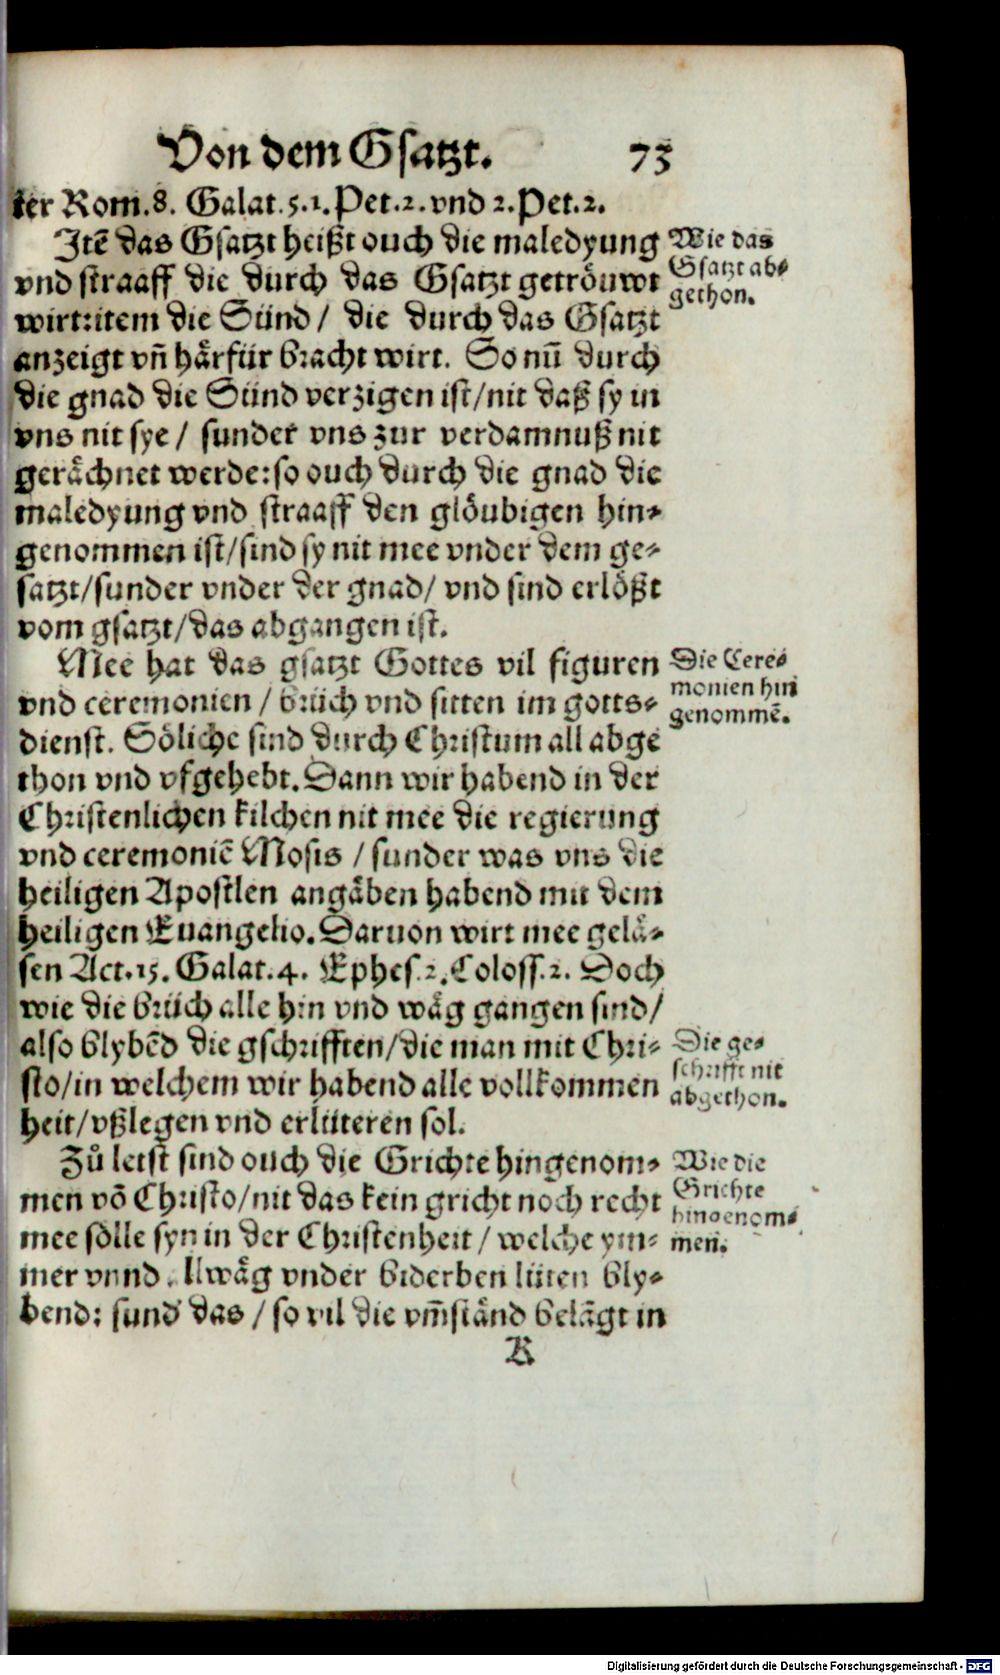 Von dem Gsatzt. 73
ter Rom.8. Galat.5.1.Pet.2.vnd 2.Pet.2.
Jtē das Gsatzt heißt ouch die maledyung
vnd straaff die durch das Gsatzt getröuwt
wirt:item die Sünd / die durch das Gsatzt
anzeigt vn̄ härfür bracht wirt. So nū durch
die gnad die Sünd verzigen ist/nit daß sy in
vns nit sye / sunder vns zur verdamnuß nit
gerächnet werde:so ouch durch die gnad die
maledyung vnd straaff den glöubigen hin-
genommen ist/sind sy nit mee vnder dem ge-
satzt/sunder vnder der gnad/ vnd sind erlößt
vom gsatzt/das abgangen ist.
Wie das
Gsatzt ab-
gethon.
Mee hat das gsatzt Gottes vil figuren
vnd ceremonien / brüch vnd sitten im gotts-
dienst. Söliche sind durch Christum all abge
thon vnd vfgehebt. Dann wir habend in der
Christenlichen kilchen nit mee die regierung
vnd ceremoniē Mosis / sunder was vns die
heiligen Apostlen angäben habend mit dem
heiligen Euangelio. Daruon wirt mee gelä-
sen Act.15. Galat.4. Ephes.2.Coloss.2. Doch
wie die brüch alle hin vnd wäg gangen sind/
also blybēd die gschrifften/die man mit Chri-
sto/in welchem wir habend alle vollkommen
heit/vßlegen vnd erlüteren sol.
Die Cere-
monien hin
genommē.
Die ge-
schrifft nit
abgethon.
Zů letst sind ouch die Grichte hingenom-
men vō Christo/nit das kein gricht noch recht
mee sölle syn in der Christenheit / welche ym-
mer vnnd allwäg vnder biderben lüten bly-
bend: sund das / so vil die vm̄ständ belāgt in
Wie die
Grichte
hingenom-
men.
K
Digitalisierung gefördert durch die Deutsche Forschungsgemeinschaft - DFG